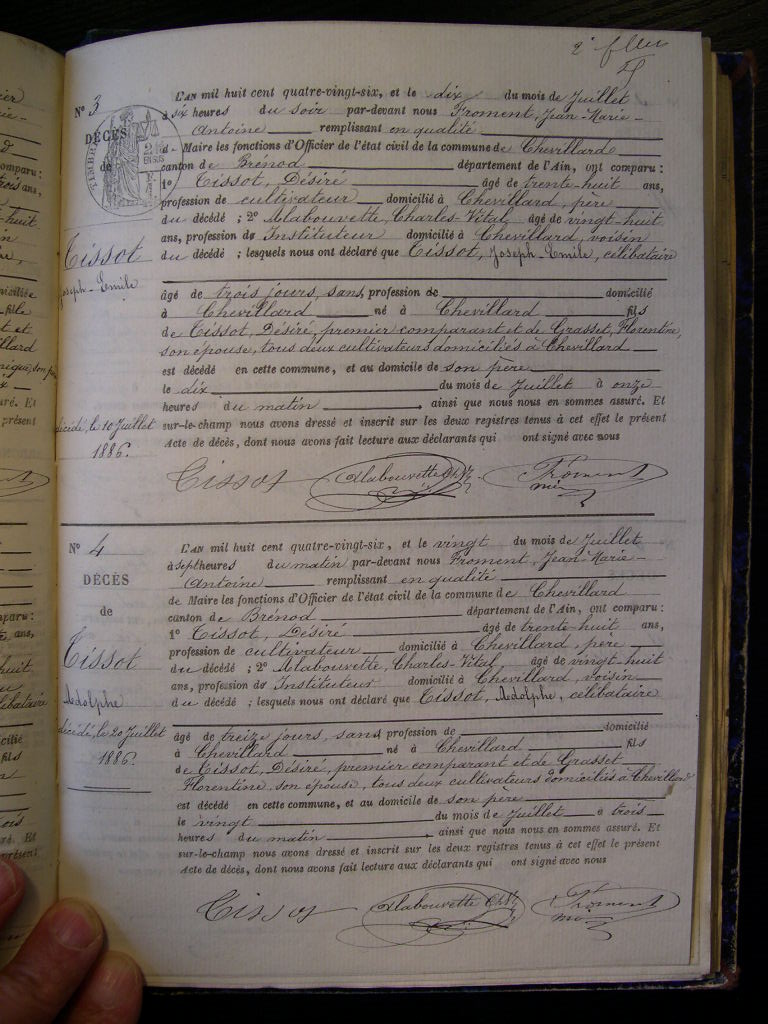 2e f
N° 3
DÉCÈS
de
Tissot
Joseph-Emile
décédé, le 10 Juillet
1886.
L'AN mil huit cent quatre-vingt-six, et le dix du mois de Juillet
à six heures du soir par-devant nous Froment, Jean-Marie-
Antoine remplissant en qualité
de Maire les fonctions d'Officier de l'état civil de la commune de Chevillard
canton de Brénod département de l'Ain, ont comparu :
1° Tissot, Désiré âgé de trente-huit ans,
profession de cultivateur domicilié à Chevillard, père
du décédé ; 2° Alabouvette, Charles-Vital, âgé de vingt-huit
ans, profession de Instituteur domicilié à Chevillard, voisin
du décédé ; lesquels nous ont déclaré que Tissot, Joseph-Emile, célibataire
âgé de trois jours, sans profession de domicilié
à Chevillard né à Chevillard fils
de Tissot, Désiré, premier comparant et de Grasset, Florentine,
son épouse, tous deux cultivateurs domiciliés à Chevillard
est décédé en cette commune, et au domicile de son père
le dix du mois de Juillet à onze
heures du matin, ainsi que nous nous en sommes assuré. Et
sur-le-champ nous avons dressé et inscrit sur les deux registres tenus à cet effet le présent
Acte de décès, dont nous avons fait lecture aux déclarants qui ont signé avec nous
Tissot Alabouvette Ch. V. Froment
N° 4
DÉCÈS
de
Tissot
Adolphe
décédé, le 20 Juillet
1886.
L'AN mil huit cent quatre-vingt-six, et le vingt du mois de Juillet
à sept heures du matin par-devant nous Froment, Jean-Marie-
Antoine remplissant en qualité
de Maire les fonctions d'Officier de l'état civil de la commune de Chevillard
canton de Brénod département de l'Ain, ont comparu :
1° Tissot, Désiré âgé de trente-huit ans,
profession de cultivateur domicilié à Chevillard, père
du décédé ; 2° Alabouvette, Charles-Vital, âgé de vingt-huit
ans, profession de Instituteur domicilié à Chevillard, voisin
du décédé ; lesquels nous ont déclaré que Tissot, Adolphe, célibataire
âgé de treize jours, sans profession de domicilié
à Chevillard né à Chevillard fils
de Tissot, Désiré, premier comparant et de Grasset
Florentine, son épouse, tous deux cultivateurs domiciliés à Chevillard
est décédé en cette commune, et au domicile de son père
le vingt du mois de Juillet à trois
heures du matin, ainsi que nous nous en sommes assuré. Et
sur-le-champ nous avons dressé et inscrit sur les deux registres tenus à cet effet le présent
Acte de décès, dont nous avons fait lecture aux déclarants qui ont signé avec nous
Tissot Alabouvette Ch. V. Froment